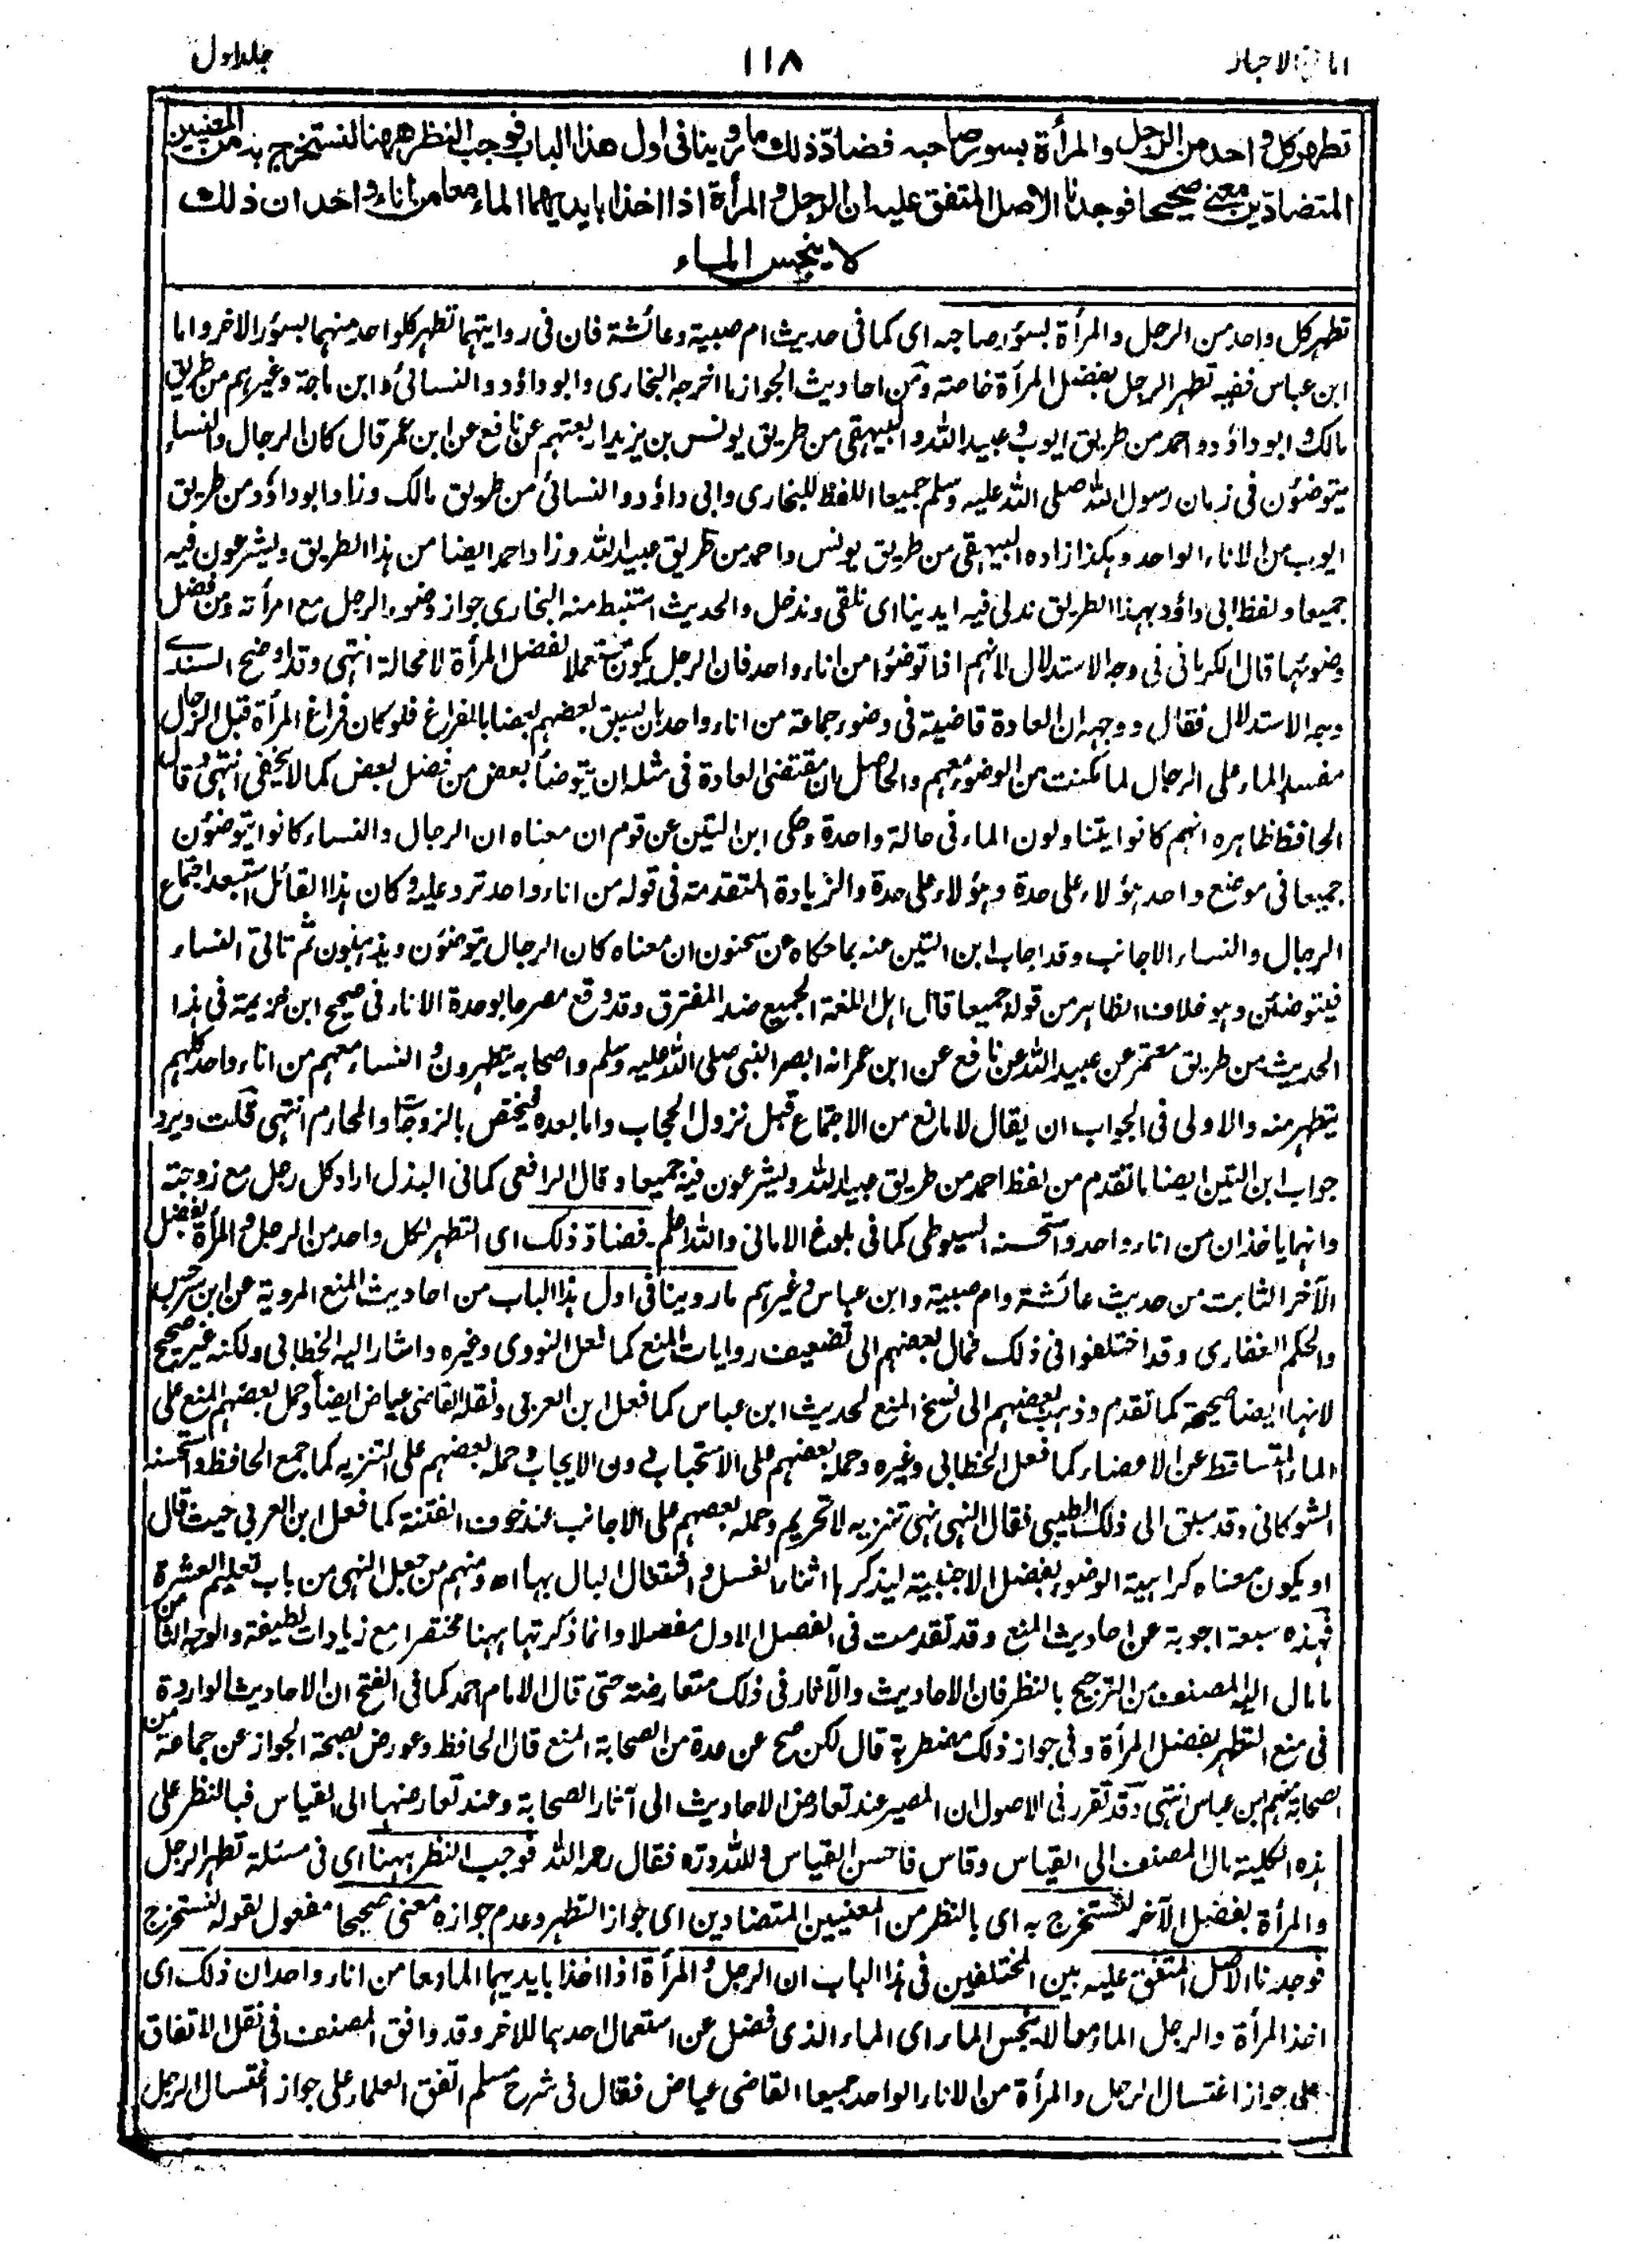 امانی الاحبار ۱۱۸ جلد اول
تطهر كل واحد من الرجل والمرأة بسور صاحبه فضادّ ذلك ما روينا فى اول هذا الباب فوجب النظر ههنا لنستخرج به من المعنيين
المتضادّين معنى صحيحا فوجدنا الاصل المتفق عليه ان الرجل والمرأة اذا اخذا بايديهما الماء معا من اناء واحد ان ذلك
لا ينجس الماء
تطهر كل واحد من الرجل والمرأة بسؤر صاحبه اى كما فى حديث ام صبية وعائشة فان فى روايتهما تطهر كلواحد منهما بسؤر الاخر واما
ابن عباس ففيه تطهر الرجل بفضل المرأة خاصة ومن احاديث الجواز ما اخرجه البخارى وابو داؤد والنسائى وابن ماجة وغيرهم من طريق
مالك وابو داؤد واحمد من طريق ايوب وعبيد الله والبيهقى من طريق يونس بن يزيد اربعتهم عن نافع عن ابن عمر قال كان الرجال والنساء
يتوضئون فى زمان رسول الله صلى الله عليه وسلم جميعا اللفظ للبخارى وابى داؤد والنسائى من طريق مالك وزاد ابو داؤد من طريق
ايوب من الاناء الواحد وهكذا زاده البيهقى من طريق يونس واحمد من طريق عبيد الله وزاد احمد ايضا من هذا الطريق ويشرعون فيه
جميعا ولفظ ابى داؤد بهذا الطريق ندلى فيه ايدينا اى نلقى وندخل والحديث استنبط منه البخارى جواز وضوء الرجل مع امرأته ومن فضل
وضوئها قال الكرمانى فى وجه الاستدلال لانهم اذا توضئوا من اناء واحد فان الرجل يكون مستعملا لفضل المرأة لا محالة انتهى وقد اوضح السندے
وجه الاستدلال فقال ووجهه ان العادة قاضية فى وضوء جماعة من اناء واحد بان يسبق بعضهم بعضا بالفراغ فلو كان فراغ المرأة قبل الرجال
مفسد الماء على الرجال لما مكنت من الوضوء معهم والحاصل ان مقتضى العادة فى مثله ان يتوضأ بعض من فضل بعض كما لا يخفى انتهى وقال
الحافظ ظاهره انهم كانوا يتناولون الماء فى حالة واحدة وحكى ابن التين عن قوم ان معناه ان الرجال والنساء كانوا يتوضئون
جميعا فى موضع واحد هؤلاء على حدة وهؤلاء على حدة والزيادة المتقدمة فى قوله من اناء واحد ترد عليه وكان هذا القائل استبعد اجتماع
الرجال والنساء الاجانب وقد اجاب ابن التين عنه بما حكاه عن سحنون ان معناه كان الرجال يتوضئون ويذهبون ثم تاتى النساء
فيتوضئن وهو خلاف الظاهر من قوله جميعا قال اهل اللغة الجميع ضد المفترق وقد وقع مصرحا بوحدة الاناء فى صحيح ابن خزيمة فى هذا
الحديث من طريق معتمر عن عبيد الله عن نافع عن ابن عمر انه ابصر النبى صلى الله عليه وسلم واصحابه يتطهرون والنساء معهم من اناء واحد كلهم
يتطهر منه والاولى فى الجواب ان يقال لا مانع من الاجتماع قبل نزول الحجاب واما بعده فيختص بالزوجات والمحارم انتهى قلت ويرد
جواب ابن التين ايضا ما تقدم من لفظ احمد من طريق عبيد الله ويشرعون فيه جميعا وقال الرافعى كما فى البذل اراد كل رجل مع زوجته
وانهما ياخذان من اناء واحد واستحسنه السيوطى كما فى بلوغ الامانى والله اعلم. فضاد ذلك اى التطهر لكل واحد من الرجل والمرأة بفضل
الآخر الثابت من حديث عائشة وام صبية وابن عباس وغيرهم ما روينا فى اول هذا الباب من احاديث المنع المروية عن ابن سرجس
والحكم الغفارى وقد اختلفوا فى ذلك فمال بعضهم الى تضعيف روايات المنع كما فعل النووى وغيره واشار اليه الخطابى ولكنه غير صحيح
لانها ايضا صحيحة كما تقدم وذهب بعضهم الى نسخ المنع لحديث ابن عباس كما فعل ابن العربى ونقله القاضى عياض ايضا وحمل بعضهم المنع على
الماء المتساقط عن الاعضاء كما فعل الخطابى وغيره وحمله بعضهم على الاستحباب دون الايجاب وحمله بعضهم على التنزيه كما جمع الحافظ واستحسنه
الشوكانى وقد سبق الى ذلك الطيبى فقال النهى نهى تنزيه لا تحريم وحمله بعضهم على الاجانب عند خوف الفتنة كما فعل ابن العربى حيث قال
او يكون معناه كراهية الوضوء بفضل الاجنبية ليذكرها اثناء الغسل واشتغال البال بها اه ومنهم من جعل النهى من باب تعليم العشرة
فهذه سبعة اجوبة عن احاديث المنع وقد تقدمت فى الفصل الاول مفصلا وانما ذكرتها ههنا مختصرا مع زيادات لطيفة والوجه الثامن
ما مال اليه المصنف من الترجيح بالنظر فان الاحاديث والآثار فى ذلك متعارضة حتى قال الامام احمد كما فى الفتح ان الاحاديث الواردة
فى منع التطهر بفضل المرأة وفى جواز ذلك مضطربة قال لكن صح عن عدة من الصحابة المنع قال الحافظ وعورض بصحة الجواز عن جماعة من
الصحابة منهم ابن عباس انتهى وقد تقرر فى الاصول ان المصير عند تعارض الاحاديث الى آثار الصحابة وعند تعارضها الى القياس فبالنظر على
هذه الكلية مال المصنف الى القياس وقاس فاحسن القياس ولله دره فقال رحمه الله فوجب النظر ههنا اى فى مسئلة تطهر الرجل
والمرأة بفضل الآخر لنستخرج به اى بالنظر من المعنيين المتضادين اى جواز التطهر وعدم جوازه معنى صحيحا مفعول لقوله لنستخرج
فوجدنا الاصل المتفق عليه بين المختلفين فى هذا الباب ان الرجل والمرأة اذا اخذا بايديهما الماء معا من اناء واحد ان ذلك اى
اخذ المرأة والرجل الماء معا لا ينجس الماء اى الماء الذى فضل عن استعمال احدهما للآخر وقد وافق المصنف فى نقل الاتفاق
على جواز اغتسال الرجل والمرأة من الاناء الواحد جميعا القاضى عياض فقال فى شرح مسلم اتفق العلماء على جواز اغتسال الرجل